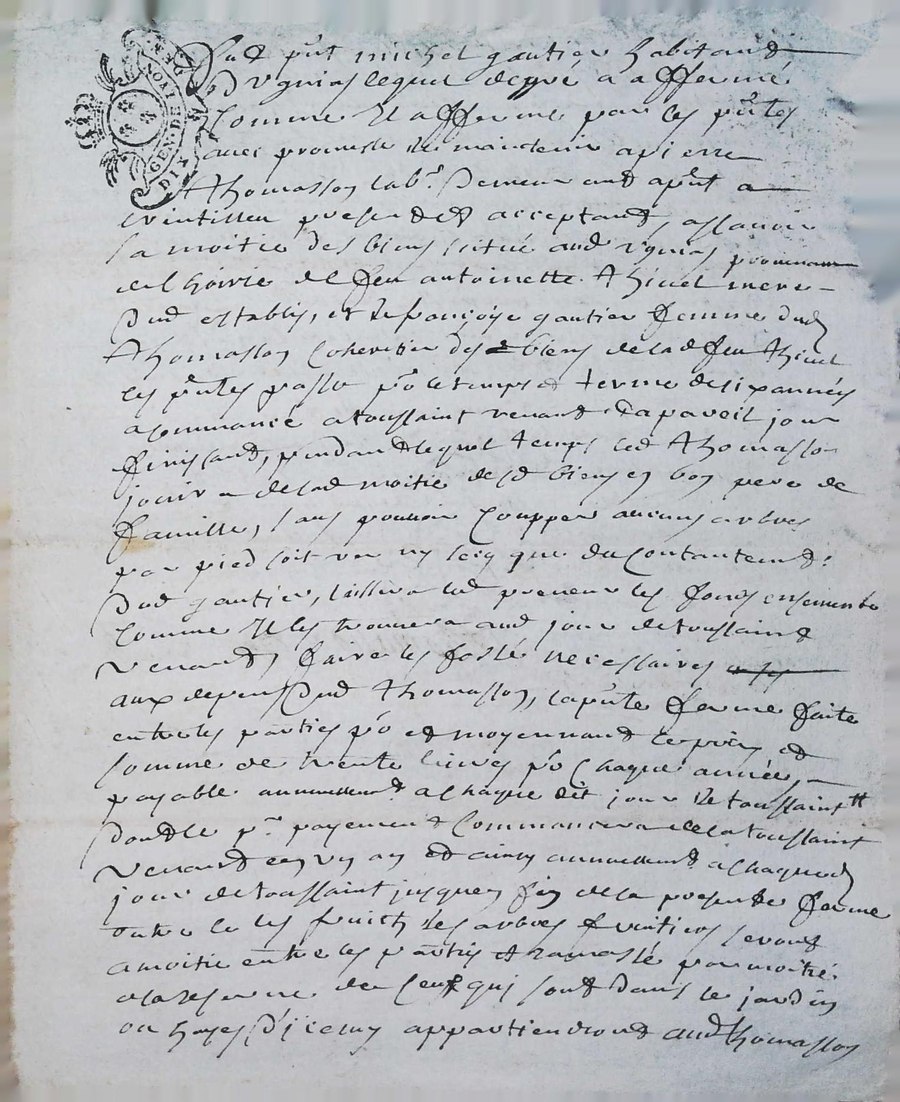 GEN. DE LYON
DIX DEN
fut pnt michel gautier habitand
lequel degré a affermé
Comme Il afferme par les pntes
avec promesse de maintenir a pierre
thomasson labr. Demeurand apnt a
presend et acceptand, assavoir
la moitié des biens situé aud
provenant
de lhoirie de feu antoinette thivel mere
Dud establi, et de françoise gautier femme dud
thomasson Coheritier des biens de lad feu thivel
les pntes passé pr le temps et terme de six années
a commancé a toussaint venand Et a paveil jour
finissand, pendand lequel temps led thomasson
jouira de lad moitié desd biens en bon pere de
famille, sans pouvoir Coupper aucuns arbres
par pied soit ver ny secq que du Contantemend
Dud gautier, laissera led preneur les fonds ensemencé
Comme Il les trouvera aud jour de toussaind
venand, faire les fossé necessaires
aux depens Dud thomasson, la pnte ferme faite
entre les parties pr et moyennand le prix et
somme de trente livres pr Chaque année,
payable annuellemend a Chaque dit jour de toussaint
Dond le pr. payemend Commancera de la toussaint
venand en un an et ainsy annuellemend a Chaque d
jour de toussaint jusques fin de la presente ferme
outre ce les fruits des arbres fruitiers serons
a moitié entre les parties et ramassé par moitié
a la reserve de Ceux qui sond dans le jardin
ou hayes D'iceluy appartiendrond aud thomasson